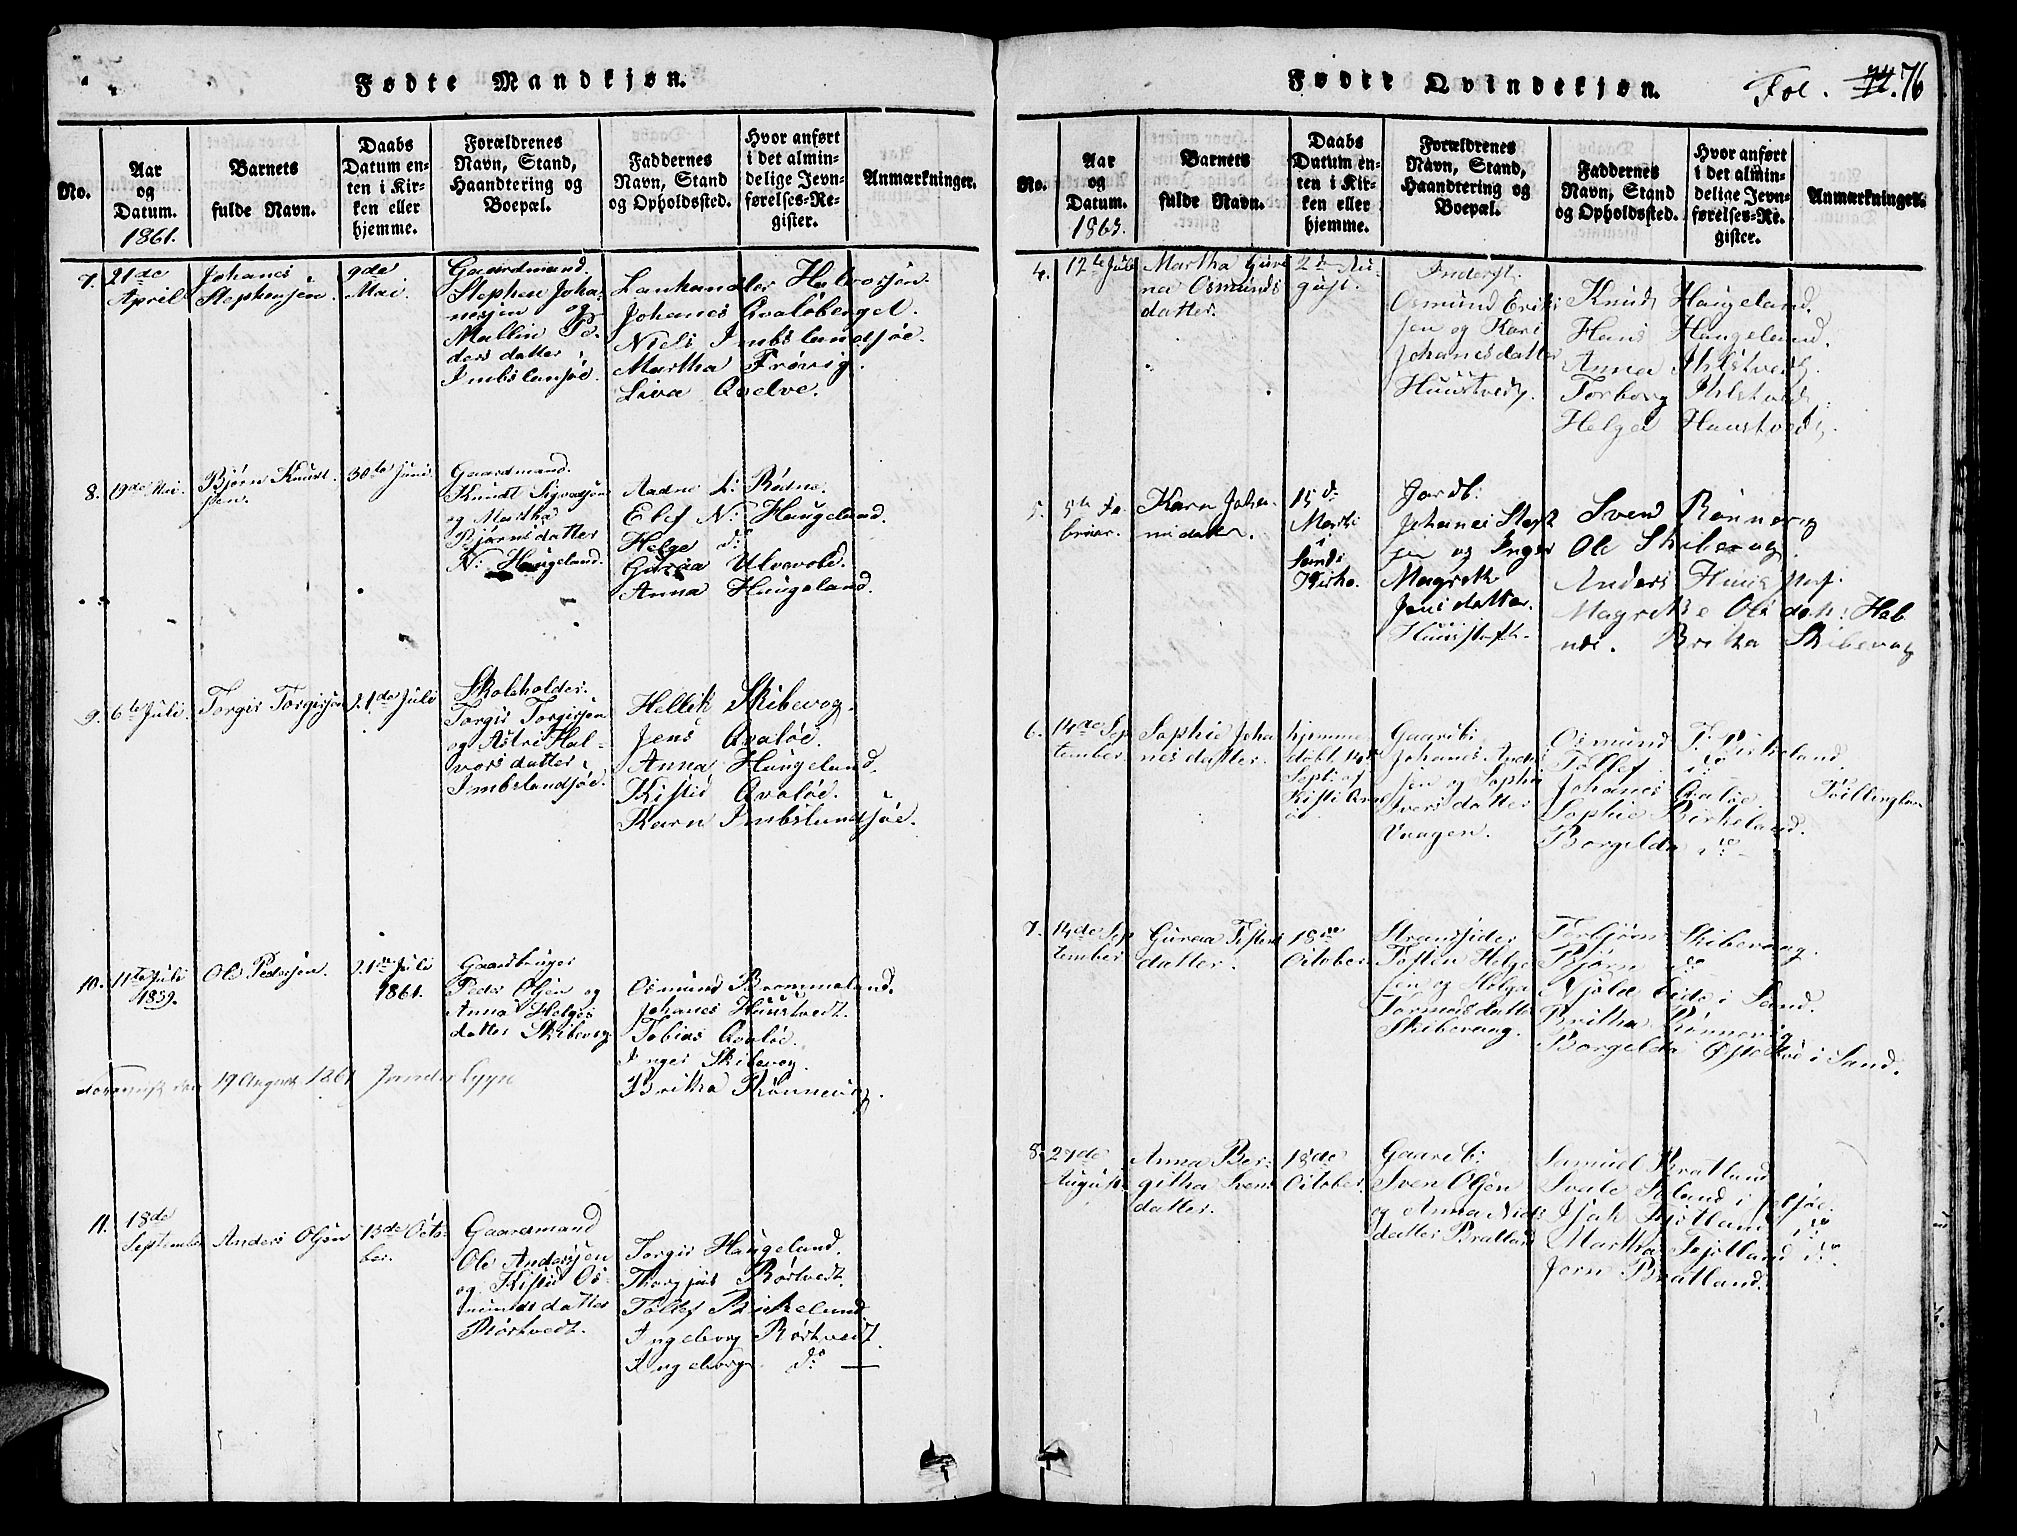 Fødte Mandkjøn.
No.
Aar
og
Datum.
1861.
Barnets
fulde Navn.
Daabs
Datum en-
ten i Kir-
ken eller
hjemme.
Forældrenes
Navn, Stand,
Haandtering og
Boepæl.
Faddernes
Navn, Stand
og Opholdssted.
Hvor anført
i det almin-
delige Jevn-
førelses-Re-
gister.
Anmærkninger.
7.
21de
April
Johanes
Stephensen
9de
Mai.
Gaardmand.
Stephen Joha-
nesjen og
Mallin Pe-
dersdatter
Imbslansjøe.
Lanhandler Halvorsjon.
Johanes Qvaløberget.
Niels Imbslandsjøe.
Martha Frøvig.
Siva Qvelve.
8.
19de Mai.
Bjørn Knudt-
sen.
30te Juni
Gaardmand.
Knudt Sigvedsjøn
og Martha
Bjørnsdatter
N: Haugeland.
Aadne L: Rødne.
Elef N: Haugeland.
Helge d:o
Guraa Ulvevole.
Anna Haugeland.
9.
6te Juli.
Torgis Torgisjøn
21de Juli
Skoleholder.
Torgis Torgisjøn
og Astri Hal-
vorsdatter
Imbslandsjøe.
Hellik Skibevog.
Jens Qvaløe.
Anna Haugeland.
Kistid Qvaløe.
Karn Imbslandsjøe.
10.
11te Juli
1859.
Ole Pedersjen.
21de Juli
1861.
Gaardbruger
Peder Olsen og
Anna Helges
datter Skibevog
Osmund Brommeland.
Johanes Huustvedt.
Tobias Qvaløe.
Inger Skibevog.
Britha Rønnevig.
19 August 1861
11.
18de
September
Anders Olsen
13de Octo-
ber.
Gaardmand
Ole Andersjen
og Kistid Os-
mundsdatter
Rørtvedt.
Torgis Haugeland.
Thorgjuls Rørtvedt.
Tollef Birkelund
Ingeborg Rørtvedt.
Ingeborg d:o
Fødte Qvindekjøn.
Fol. 76
No.
Aar
og
Datum.
1863.
Barnets
fulde Navn.
Daabs
Datum en-
ten i Kir-
ken eller
hjemme.
Forældrenes
Navn, Stand,
Haandtering og
Boepæl.
Faddernes
Navn, Stand
og Opholdssted.
Hvor anført
i det almin-
delige Jevn-
førelses-Re-
gister.
Anmærkninger.
4.
12te Juli
Martha Gure
na Osmunds
datter.
2de Au-
gust.
Inderst.
Osmund Erik
sen og Kari
Johanesdatter
Huustvedt.
Knudt Haugeland.
Hans Haugeland.
Anna Hilstvedt.
Torborg Hilstvedt.
Helga Huustvedt.
5.
5te Fe-
bruar.
Karn Joha-
nisdatter.
15de
Marts
i
Sands
Kirke.
Jordb:
Johanes Steph
sen og Inger
Magrethe
Jensdatter.
Huustoft.
Svend Rønnevig
Ole Skibevog.
Anders Huustoft.
Magrethe Olsdat: Hab
nde. Britha Skibevog
6.
14de Sep
tember
Sophie Joha
nesdatter.
hjemme
døbt 14de
Sept: af
Kisti
Gaardb:
Johanes Anders
sen og Sophie
Iversdatter
Vaagen.
Osmund T. Birkeland.
Tollef d:o
Johanes Qvaløe.
Sophie Birkeland.
Borgelda d:o
7.
14de Sep
tember
Guraa Tostens
datter.
18de
October
Strandsider
Tostin Helge
sen og Helga
Tormodsdatter
Skibevaag.
Torbjørn Skibevaag.
Bjørn d:o
Njøld Eide i Sand.
Britha Rønnevig
Borgelda i Sand.
8.
27de
August.
Anna Ber-
githa Svens
datter.
18de
October.
Gaardb:
Sven Olsen
og Anna Niels
datter Bratland
Samuel Bratland
Svale
Isak Fjøtland d:o
Martha Fjøtland d:o
Jorn Bratland.